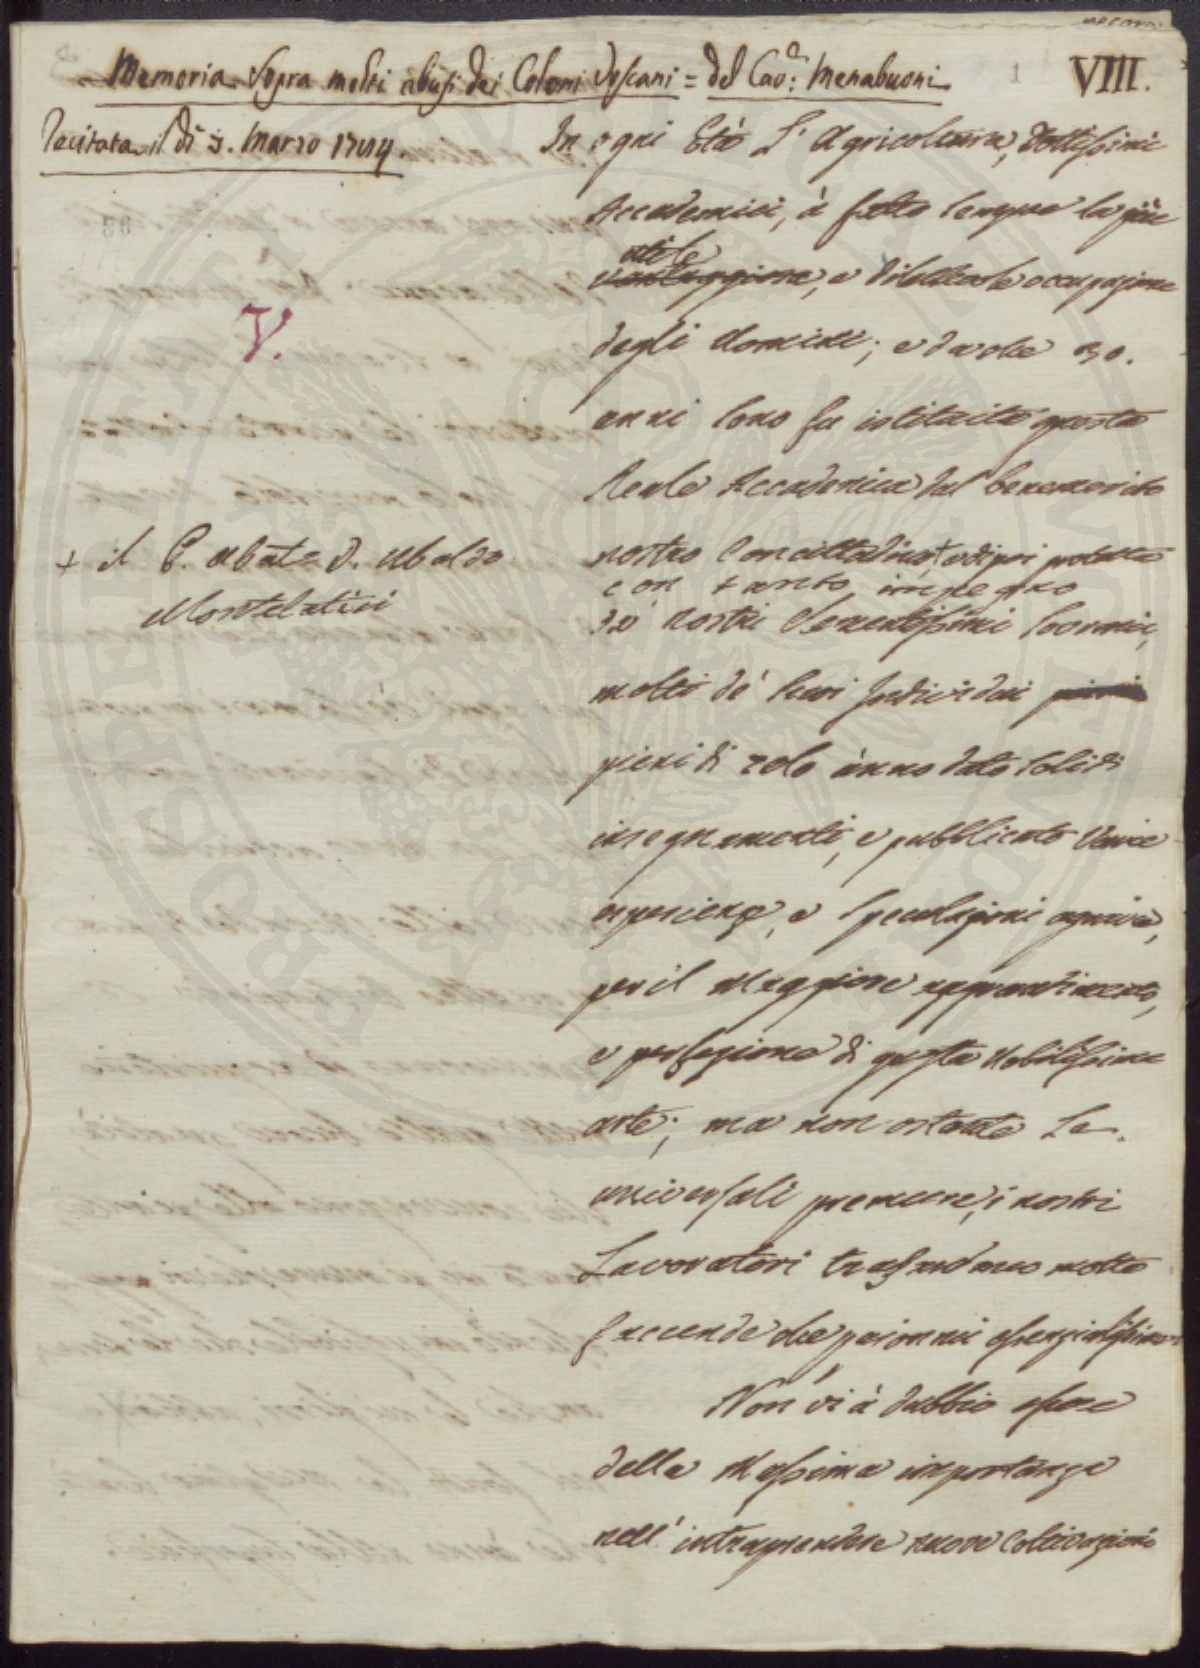 VIII.
1
Memoria Sopra molti abusi dei Coloni Toscani = del Cav: Menabuoni
Recitata il dì 3. Marzo 1784.
In ogni Età L' Agricoltura, Dottissimi
Accademici, à fatto sempre la più
utile
vantaggiosa, e dilettevole occupazione
degli Uomini; e da oltre 30.
anni sono fu istituita questa
Reale Accademia dal benemerito
nostro Concittadino,+ e di poi protetta
con tanto impegno
+ il P. Abate D. Ubaldo
Montelatici
de' nostri Clementissimi Sovrani,
molti de' suoi Individui
pieni di zelo ànno dato solidi
insegnamenti, e pubblicato varie
esperienze, e speculazioni agrarie,
per il Maggiore
e perfezione di questa Nobilissima
arte; ma non ostante Le
universali premure, i nostri
Lavoratori molte
faccende
Non vi à dubbio essere
della Massima importanza
nell' intraprendere nuove Coltivazioni
V.